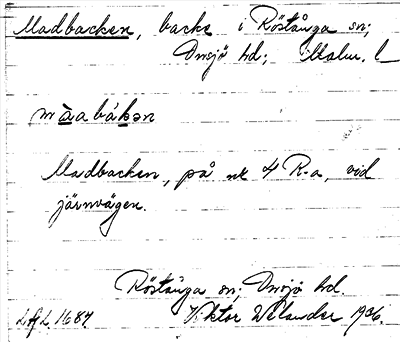 Madbacken, backe i Röstånga sn;
Onsjö hd; Malm. l
màabákən
Madbacken, på nr 4 R-a, vid
järnvägen.
Röstånga sn; Onsjö hd.
Viktor Welander 1906.
LAL 1684